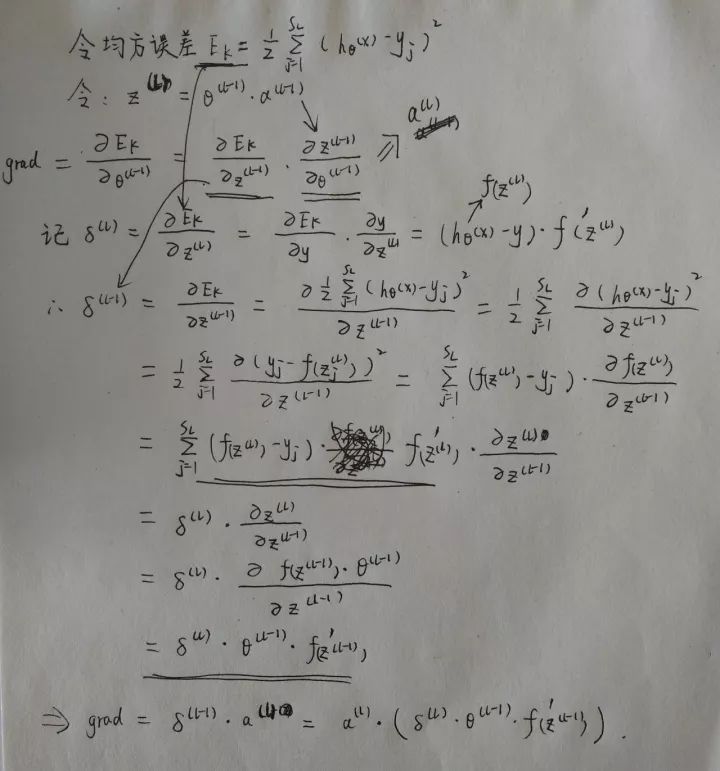 令均方误差 E_K = 1/2 Σ_{j=1}^{S_L} (h_θ(x) - y_j)²
令: z^(L) = θ^(L-1) · a^(L-1)
a^(L)
grad = ∂E_K/∂θ^(L-1) = ∂E_K/∂z^(L-1) · ∂z^(L-1)/∂θ^(L-1) ⇗
f(z^(L))
记 δ^(L) = ∂E_K/∂z^(L) = ∂E_K/∂y · ∂y/∂z^(L) = (h_θ(x) - y) · f'(z^(L))
∴ δ^(L-1) = ∂E_K/∂z^(L-1) = ∂ 1/2 Σ_{j=1}^{S_L} (h_θ(x) - y_j)² / ∂z^(L-1) = 1/2 Σ_{j=1}^{S_L} ∂(h_θ(x) - y_j)² / ∂z^(L-1)
= 1/2 Σ_{j=1}^{S_L} ∂(y_j - f(z_j^(L)))² / ∂z^(L-1) = Σ_{j=1}^{S_L} (f(z^(L)) - y_j) · ∂f(z^(L))/∂z^(L-1)
= Σ_{j=1}^{S_L} (f(z^(L)) - y_j) · f'(z^(L)) · ∂z^(L)/∂z^(L-1)
= δ^(L) · ∂z^(L)/∂z^(L-1)
= δ^(L) · ∂ f(z^(L-1)) · θ^(L-1) / ∂z^(L-1)
= δ^(L) · θ^(L-1) · f'(z^(L-1))
⇒ grad = δ^(L-1) · a^(L) = a^(L) · (δ^(L) · θ^(L-1) · f'(z^(L-1))).